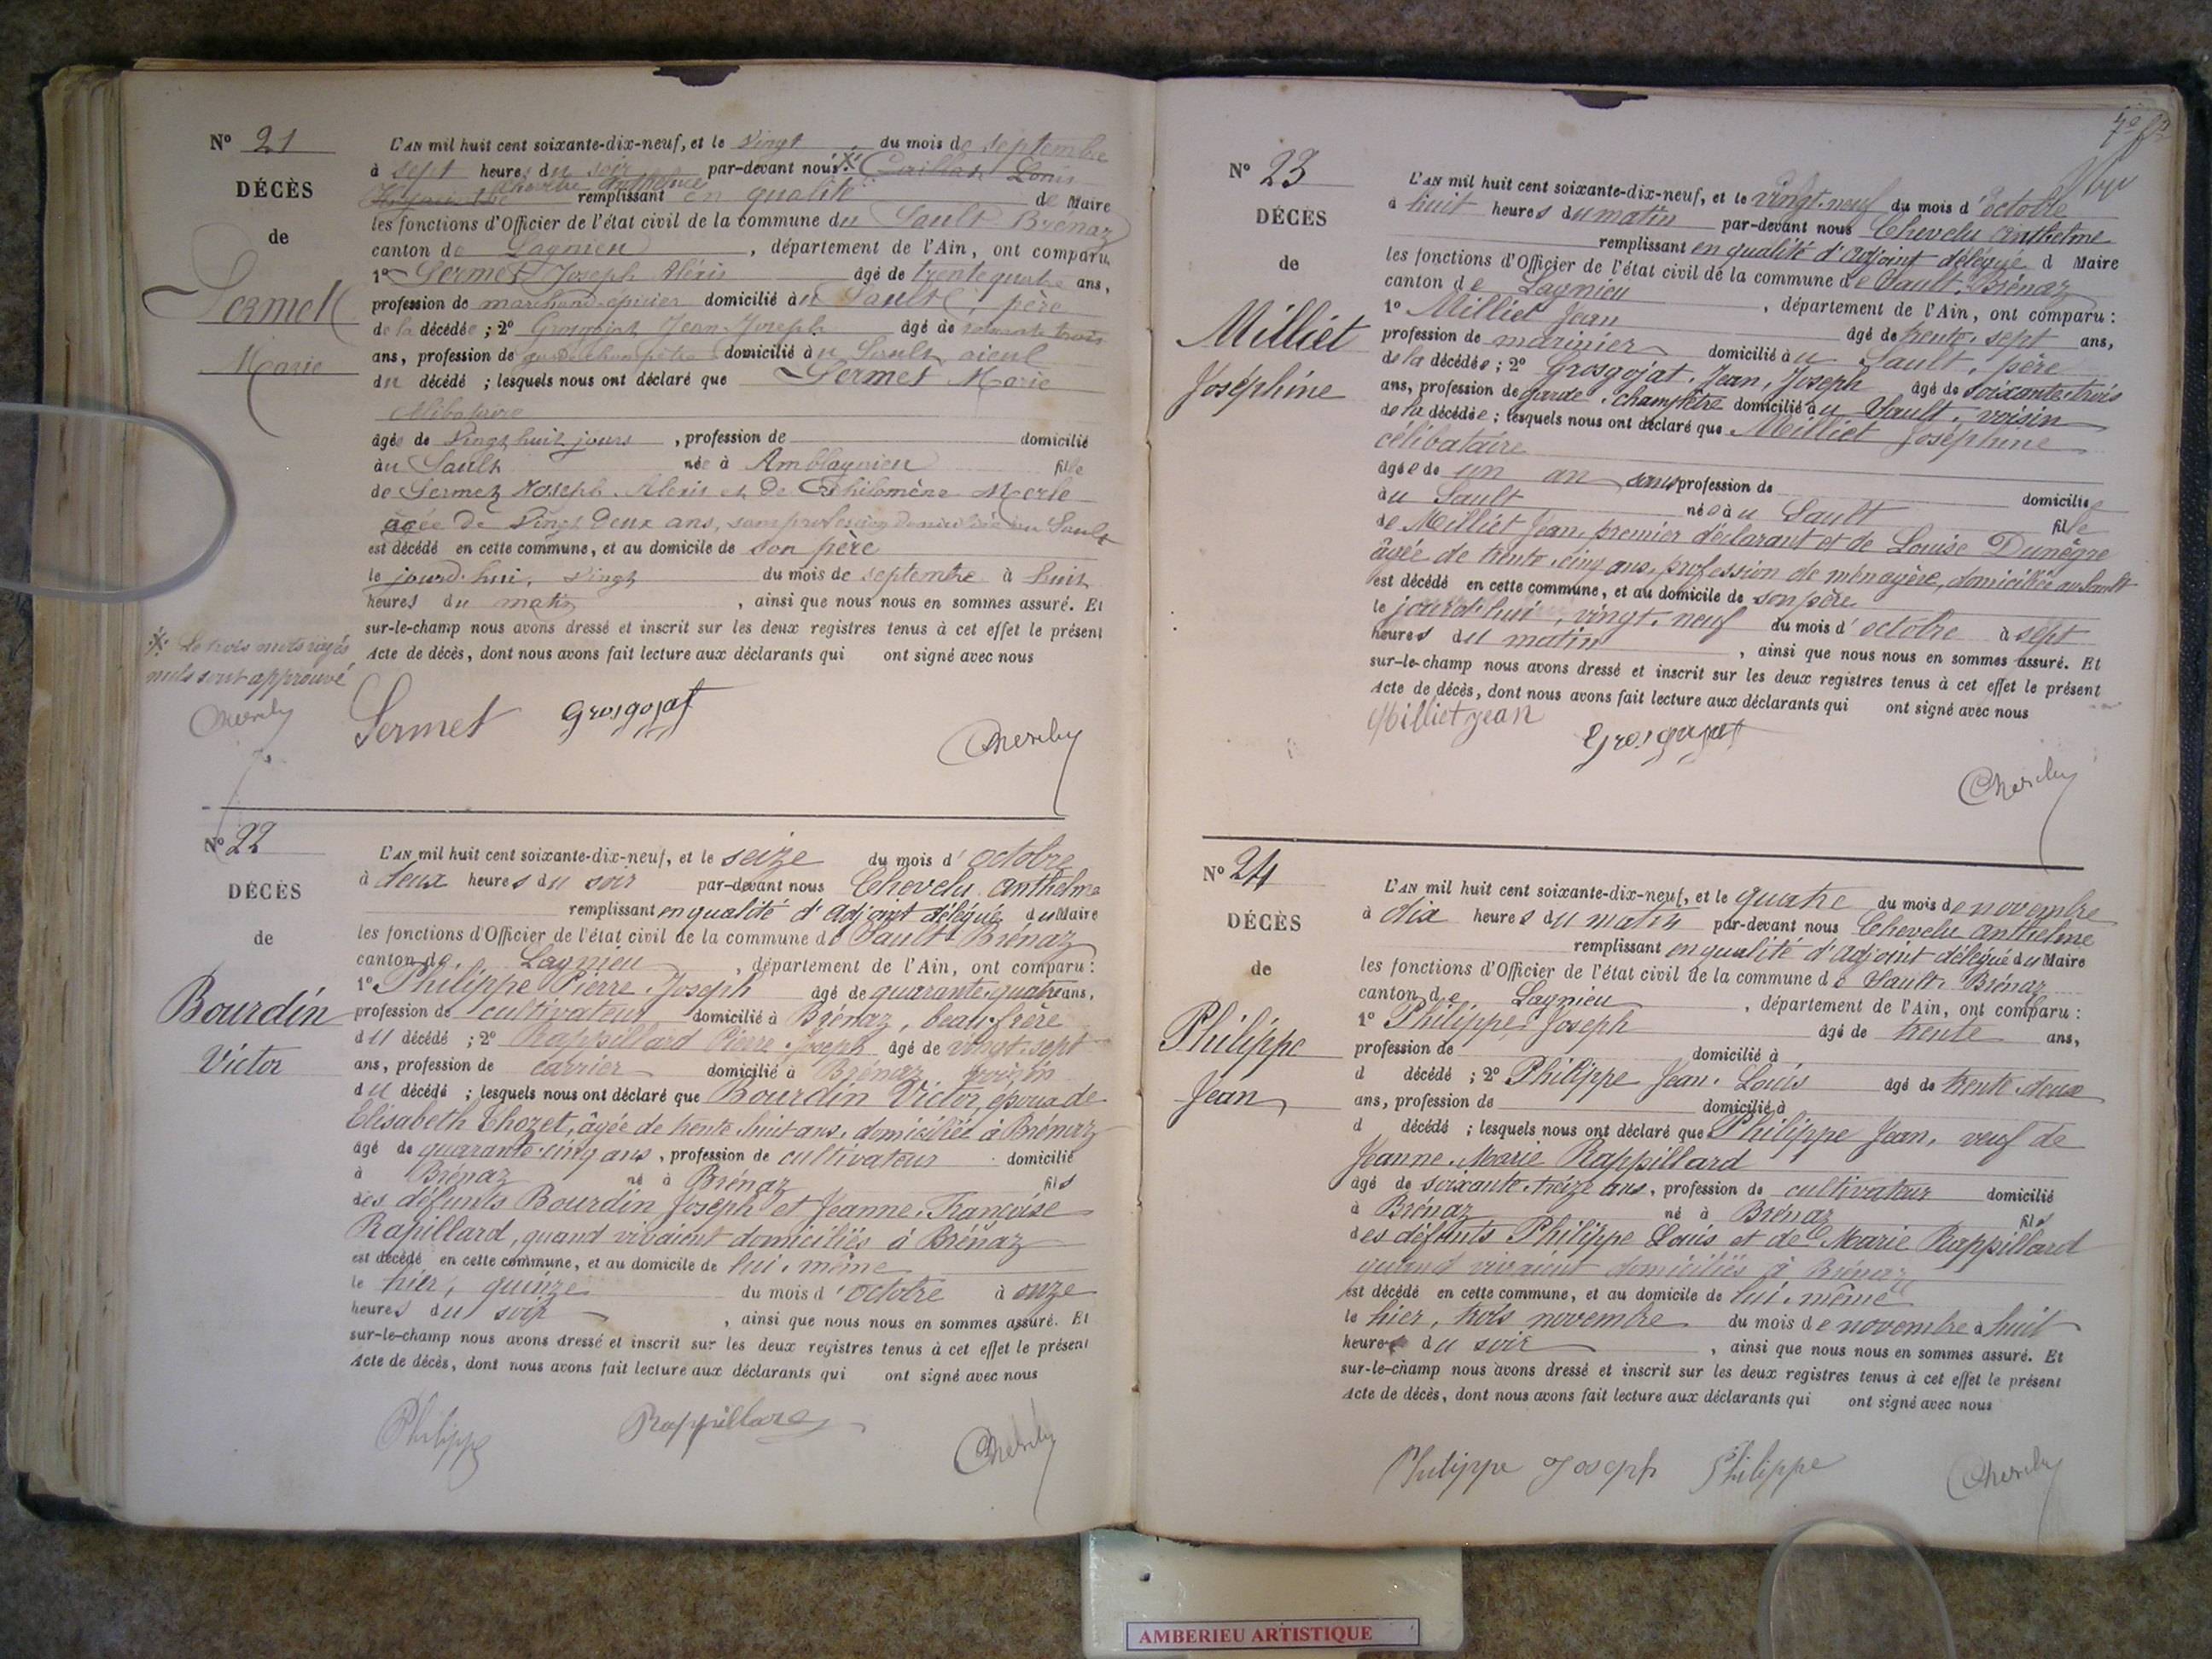 N° 21
DÉCÈS
de
Sermet
Marie
L'AN mil huit cent soixante-dix-neuf, et le Vingt du mois de septembre
à sept heures du soir par-devant nous X Caillat Louis
Chevelu Anthelme
remplissant en qualité de Maire
les fonctions d'Officier de l'état civil de la commune du Sault-Brénaz
canton de Lagnieu, département de l'Ain, ont comparu
1° Sermet Joseph Aléxis âgé de trente quatre ans,
profession de marchand épicier domicilié au Sault, père
de la décédée ; 2° Grosgojat Jean Joseph âgé de soixante trois
ans, profession de garde champêtre domicilié au Sault aieul
du décédé ; lesquels nous ont déclaré que Sermet Marie
célibataire
âgée de Vingt huit jours, profession de domicilié
au Sault née à Amblagnieu fille
de Sermet Joseph Alexis et De Philomène Merle
âgée de Vingt Deux ans, sans profession domiciliée au Sault
est décédé en cette commune, et au domicile de son père
le jourd'hui, Vingt du mois de septembre à huit
heures du matin, ainsi que nous nous en sommes assuré. Et
sur-le-champ nous avons dressé et inscrit sur les deux registres tenus à cet effet le présent
Acte de décès, dont nous avons fait lecture aux déclarants qui ont signé avec nous
X Le trois mots rayés
nuls sont approuvé
Sermet Grosgojat
N° 22
DÉCÈS
de
Bourdin
Victor
L'AN mil huit cent soixante-dix-neuf, et le seize du mois d'octobre
à deux heures du soir par-devant nous Chevelu Anthelme
remplissant en qualité d'Adjoint délégué du Maire
les fonctions d'Officier de l'état civil de la commune de Sault-Brénaz
canton de Lagnieu, département de l'Ain, ont comparu :
1° Philippe Pierre Joseph âgé de quarante-quatre ans,
profession de cultivateur domicilié à Brénaz, beau-frère
du décédé ; 2° Rappillard Pierre-Joseph âgé de vingt-sept
ans, profession de carrier domicilié à Brénaz voisin
du décédé ; lesquels nous ont déclaré que Bourdin Victor, époux de
Elisabeth Thozet, âgée de trente-huit ans, domiciliée à Brénaz
âgé de quarante-cinq ans, profession de cultivateur domicilié
à Brénaz né à Brénaz fils
des défunts Bourdin Joseph et Jeanne-Françoise
Rapillard, quand vivaient domiciliés à Brénaz
est décédé en cette commune, et au domicile de lui-même
le hier, quinze du mois d'octobre à onze
heures du soir, ainsi que nous nous en sommes assuré. Et
sur-le-champ nous avons dressé et inscrit sur les deux registres tenus à cet effet le présent
Acte de décès, dont nous avons fait lecture aux déclarants qui ont signé avec nous
Philippe Rappillard
N° 23
DÉCÈS
de
Milliet
Joséphine
L'AN mil huit cent soixante-dix-neuf, et le vingt-neuf du mois d'octobre
à huit heures du matin par-devant nous Chevelu Anthelme
remplissant en qualité d'Adjoint délégué d Maire
les fonctions d'Officier de l'état civil de la commune de Sault-Brénaz
canton de Lagnieu, département de l'Ain, ont comparu :
1° Milliet Jean âgé de trente-sept ans,
profession de marinier domicilié au Sault, père
de la décédée ; 2° Grosgojat, Jean, Joseph âgé de soixante-trois
ans, profession de garde-champêtre domicilié au Sault, voisin
de la décédée ; lesquels nous ont déclaré que Milliet Joséphine
célibataire
âgée de un an sans profession de domiciliée
au Sault née au Sault fille
de Milliet Jean, premier déclarant et de Louise Dunègre
âgée de trente-cinq ans, profession de ménagère, domiciliée au Sault
est décédé en cette commune, et au domicile de son père
le jourd'hui, vingt-neuf du mois d'octobre à sept
heures du matin, ainsi que nous nous en sommes assuré. Et
sur-le-champ nous avons dressé et inscrit sur les deux registres tenus à cet effet le présent
Acte de décès, dont nous avons fait lecture aux déclarants qui ont signé avec nous
Milliet jean Grosgojat
N° 24
DÉCÈS
de
Philippe
Jean
L'AN mil huit cent soixante-dix-neuf, et le quatre du mois de novembre
à dix heures du matin par-devant nous Chevelu Anthelme
remplissant en qualité d'Adjoint délégué du Maire
les fonctions d'Officier de l'état civil de la commune de Sault-Brénaz
canton de Lagnieu, département de l'Ain, ont comparu :
1° Philippe Joseph âgé de trente ans,
profession de domicilié à
d décédé ; 2° Philippe Jean-Louis âgé de trente-deux
ans, profession de domicilié à
d décédé ; lesquels nous ont déclaré que Philippe Jean, veuf de
Jeanne-Marie Rappillard
âgé de soixante-treize ans, profession de cultivateur domicilié
à Brénaz né à Brénaz fils
des défunts Philippe Louis et de Marie Rappillard
quand vivaient domiciliés à Brénaz
est décédé en cette commune, et au domicile de lui-même
le hier, trois novembre du mois de novembre à huit
heures du soir, ainsi que nous nous en sommes assuré. Et
sur-le-champ nous avons dressé et inscrit sur les deux registres tenus à cet effet le présent
Acte de décès, dont nous avons fait lecture aux déclarants qui ont signé avec nous
Philippe Joseph Philippe
AMBERIEU ARTISTIQUE